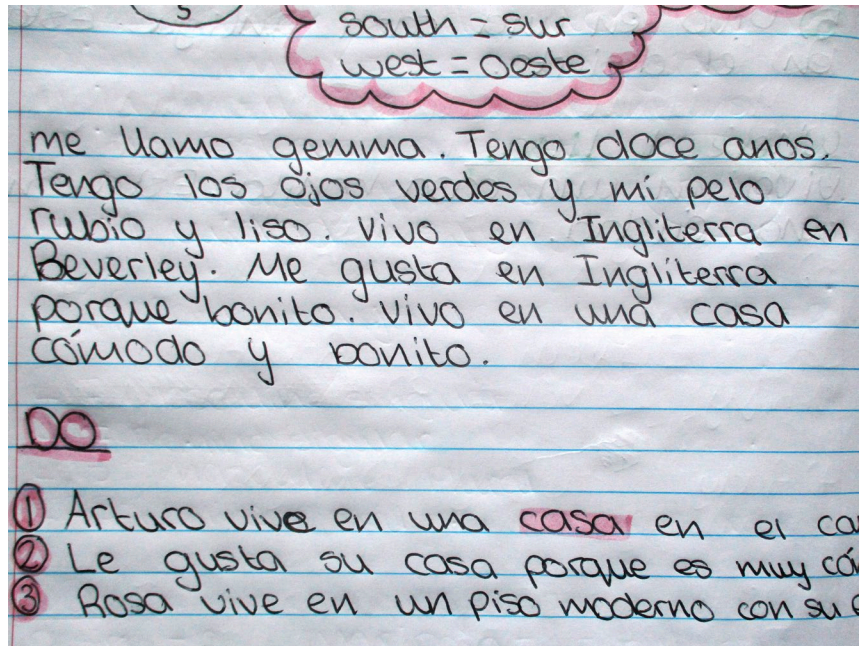 5
south = sur
west = oeste
me llamo gemma. Tengo doce anos.
Tengo los ojos verdes y mi pelo
rubio y liso. vivo en Ingliterra en
Beverley. Me gusta en Ingliterra
porque bonito. vivo en una casa
cómodo y bonito.
DO
1 Arturo vive en una casa en el
2 Le gusta su casa porque es muy
3 Rosa vive en un piso moderno con su